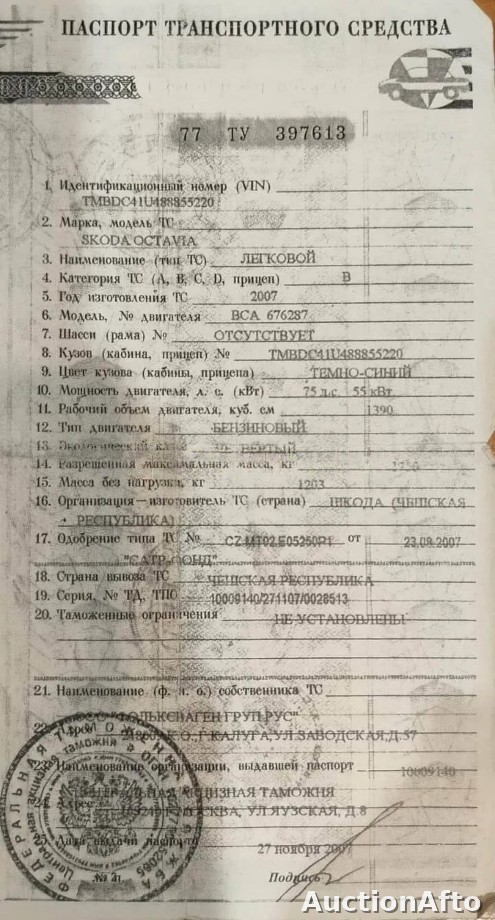 ПАСПОРТ ТРАНСПОРТНОГО СРЕДСТВА
77 ТУ 397613
1. Идентификационный номер (VIN)
TMBDC41U488855220
2. Марка, модель ТС
SKODA OCTAVIA
3. Наименование (тип ТС) ЛЕГКОВОЙ
4. Категория ТС (A, B, C, D, прицеп) B
5. Год изготовления ТС 2007
6. Модель, № двигателя BCA 676287
7. Шасси (рама) № ОТСУТСТВУЕТ
8. Кузов (кабина, прицеп) № TMBDC41U488855220
9. Цвет кузова (кабины, прицепа) ТЕМНО-СИНИЙ
10. Мощность двигателя, л. с. (кВт) 75 л.с. 55 кВт
11. Рабочий объем двигателя, куб. см 1390
12. Тип двигателя БЕНЗИНОВЫЙ
13. Экологический
14. Разрешенная максимальная масса, кг
15. Масса без нагрузки, кг 1203
16. Организация—изготовитель ТС (страна) ШКОДА (ЧЕШСКАЯ
РЕСПУБЛИКА)
17. Одобрение типа ТС № CZ.MT02.E05250P1 от 23.08.2007
"САТР-ФОНД"
18. Страна вывоза ТС ЧЕШСКАЯ РЕСПУБЛИКА
19. Серия, № ТД, ТПО 10009140/271107/0028513
20. Таможенные ограничения НЕ УСТАНОВЛЕНЫ
21. Наименование (ф. и. о.) собственника ТС
ООО "ФОЛЬКСВАГЕН ГРУП РУС"
22. Адрес К.О., Г.КАЛУГА, УЛ.ЗАВОДСКАЯ, Д.57
23. Наименование организации, выдавшей паспорт 10009140
АКЦИЗНАЯ ТАМОЖНЯ
24. Адрес МОСКВА, УЛ ЯУЗСКАЯ, Д.8
25. Дата выдачи паспорта 27 ноября 2007
№ 21
Подпись
AuctionAfto